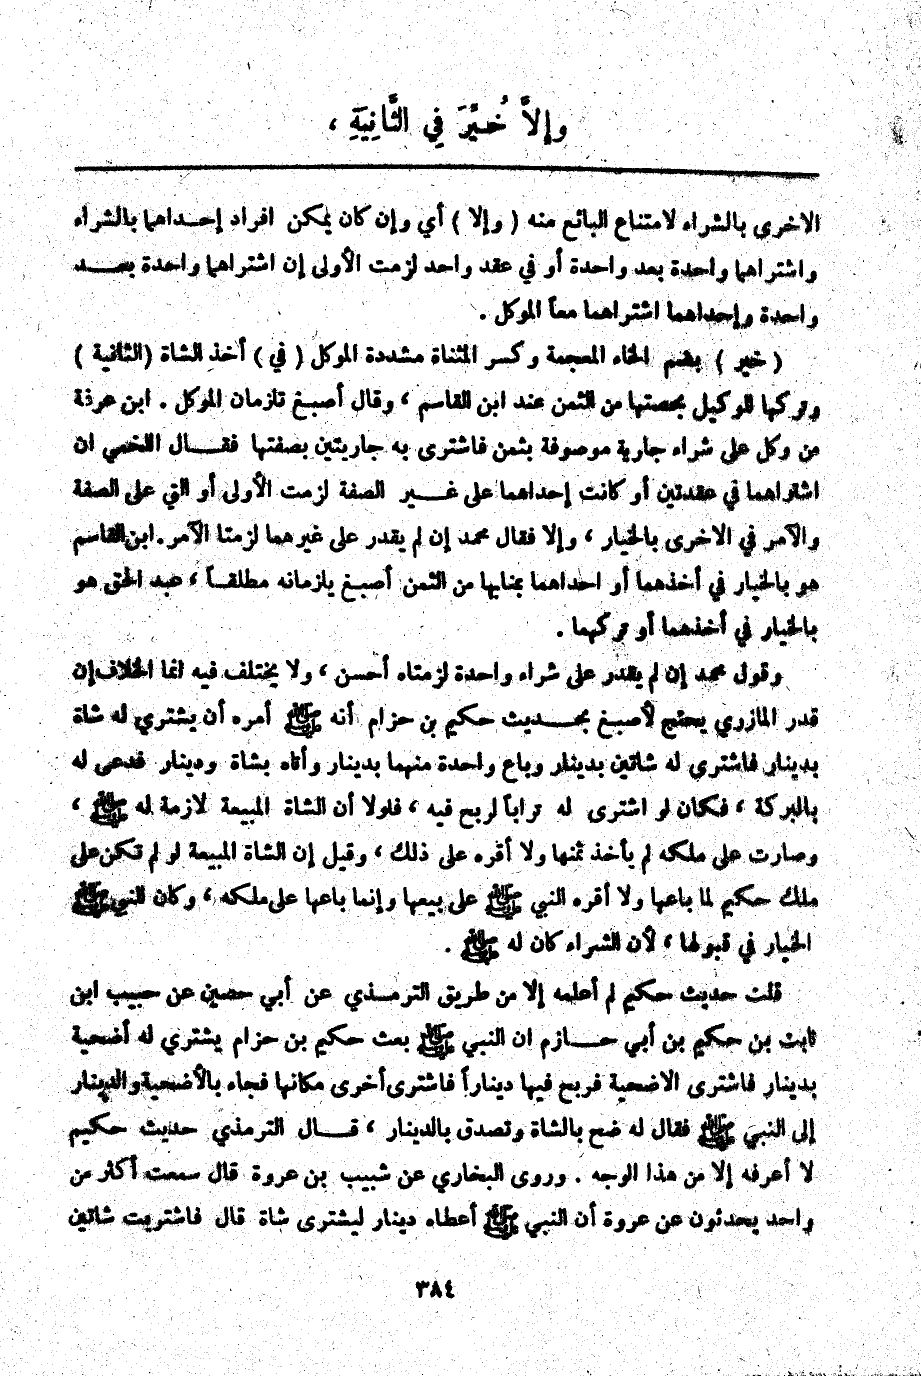 وإلاَّ خُيِّرَ فِي الثَّانِيَةِ ،
الاخرى بالشراء لامتناع البائع منه ( وإلا ) أي وإن كان يمكن افراد إحداهما بالشراء
واشتراهما واحدة بعد واحدة أو في عقد واحد لزمت الأولى إن اشتراهما واحدة بعد
واحدة وإحداهما اشتراهما معاً الموكل .
( خير ) بضم الخاء المعجمة وكسر المثناة مشددة الموكل ( في ) أخذ الشاة (الثانية )
وتركها للوكيل بحصتها من الثمن عند ابن القاسم ، وقال أصبغ تلزمان الموكل . ابن عرفة
من وكل على شراء جارية موصوفة بثمن فاشترى به جاريتين بصفتها فقال اللخمي ان
اشتراهما في عقدتين أو كانت إحداهما على غير الصفة لزمت الأولى أو التي على الصفة
والآمر في الاخرى بالخيار ، وإلا فقال محمد إن لم يقدر على غيرهما لزمتا الآمر . ابن القاسم
هو بالخيار في أخذهما أو احداهما بمنابها من الثمن أصبغ يلزمانه مطلقاً ، عبد الحق هو
بالخيار في أخذهما أو تركهما .
وقول محمد إن لم يقدر على شراء واحدة لزمتاه أحسن ، ولا يختلف فيه انما الخلاف إن
قدر المازري يحتج لأصبغ بحديث حكيم بن حزام أنه ﷺ أمره أن يشتري له شاة
بدينار فاشترى له شاتين بدينار وباع واحدة منهما بدينار وأتاه بشاة ودينار فدعى له
بالبركة ، فكان لو اشترى له تراباً لربح فيه ، فلولا أن الشاة المبيعة لازمة له ﷺ ،
وصارت على ملكه لم يأخذ ثمنها ولا أقره على ذلك ، وقيل إن الشاة المبيعة لو لم تكن على
ملك حكيم لما باعها ولا أقره النبي ﷺ على بيعها وإنما باعها على ملكه ، وكان النبي ﷺ
الخيار في قبولها ، لأن الشراء كان له ﷺ .
قلت حديث حكيم لم أعلمه إلا من طريق الترمذي عن أبي حصين عن حبيب ابن
ثابت بن حكيم بن أبي حازم ان النبي ﷺ بعث حكيم بن حزام يشتري له أضحية
بدينار فاشترى الاضحية فربح فيها ديناراً فاشترى أخرى مكانها فجاء بالأضحية والدينار
إلى النبي ﷺ فقال له ضح بالشاة وتصدق بالدينار ، قال الترمذي حديث حكيم
لا أعرفه إلا من هذا الوجه . وروى البخاري عن شبيب بن عروة قال سمعت أكثر من
واحد يحدثون عن عروة أن النبي ﷺ أعطاه دينار ليشترى شاة قال فاشتريت شاتين
٣٨٤